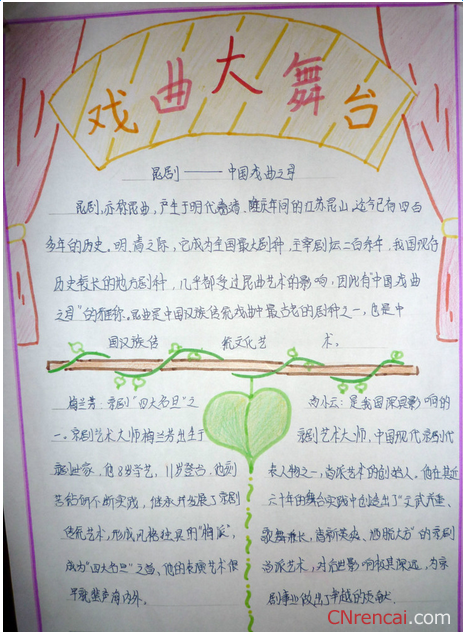 戏曲大舞台
昆剧——中国戏曲之母
昆剧,亦称昆曲,产生于明代嘉靖、隆庆年间的江苏昆山,迄今已有四百
多年的历史。明、清之际,它成为全国最大剧种,主宰剧坛二百余年,我国现存
历史较长的地方剧种,几乎都受过昆曲艺术的影响,因此有"中国戏曲
之母"的雅称。昆曲是中国汉族传统戏曲中最古老的剧种之一,也是中
国汉族传统文化艺术。
梅兰芳:京剧"四大名旦"之
一。京剧艺术大师梅兰芳出生于
京剧世家,他8岁学艺,11岁登台,他刻
苦钻研不断实践,继承并发展了京剧
传统艺术,形成风格独具的"梅派",
成为"四大名旦"之首,他的表演艺术很
早就蜚声海内外。
尚小云:是我国深具影响的
京剧艺术大师,中国现代京剧代
表人物之一,尚派艺术的创始人。他在其近
六十年的舞台实践中创造出了"文武并重、
歌舞兼长、
的京剧
尚派艺术,对后世影响极其深远,为京
剧事业做出了卓越的贡献
CNrencai.com